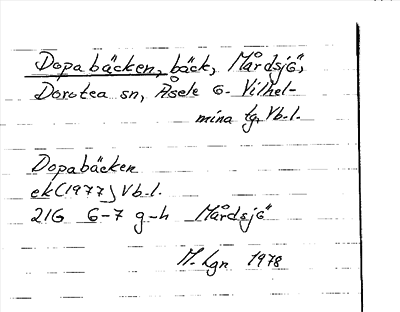 Dopabäcken, bäck, Mårdsjö,
Dorotea sn, Åsele o. Vilhel-
mina tg. Vb.l.
Dopabäcken
ek (1977) Vb.l.
21G 6-7 g-h Mårdsjö
M. Lgn 1978